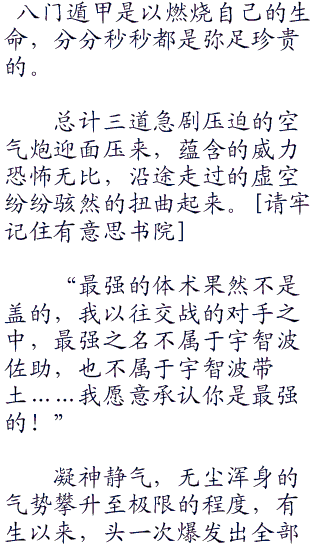 八门遁甲是以燃烧自己的生
命，分分秒秒都是弥足珍贵
的。
总计三道急剧压迫的空
气炮迎面压来，蕴含的威力
恐怖无比，沿途走过的虚空
纷纷骇然的扭曲起来。[请牢
记住有意思书院]
“最强的体术果然不是
盖的，我以往交战的对手之
中，最强之名不属于宇智波
佐助，也不属于宇智波带
土……我愿意承认你是最强
的！”
凝神静气，无尘浑身的
气势攀升至极限的程度，有
生以来，头一次爆发出全部